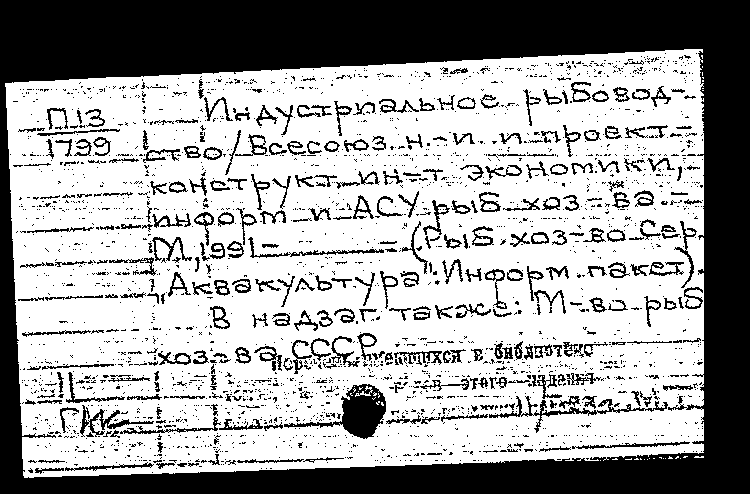 П13
1799
Индустриальное рыбовод-
ство / Всесоюз. н.-и. и проект.-
конструкт. ин-т экономики,
информ. и АСУ рыб. хоз-ва. -
М., 1991- - (Рыб. хоз-во. Сер.
"Аквакультура": Информ. пакет).
В надзаг. также: М-во рыб.
хоз-ва СССР
Перечень имеющихся в библиотеке
этого издания
II
ГМК